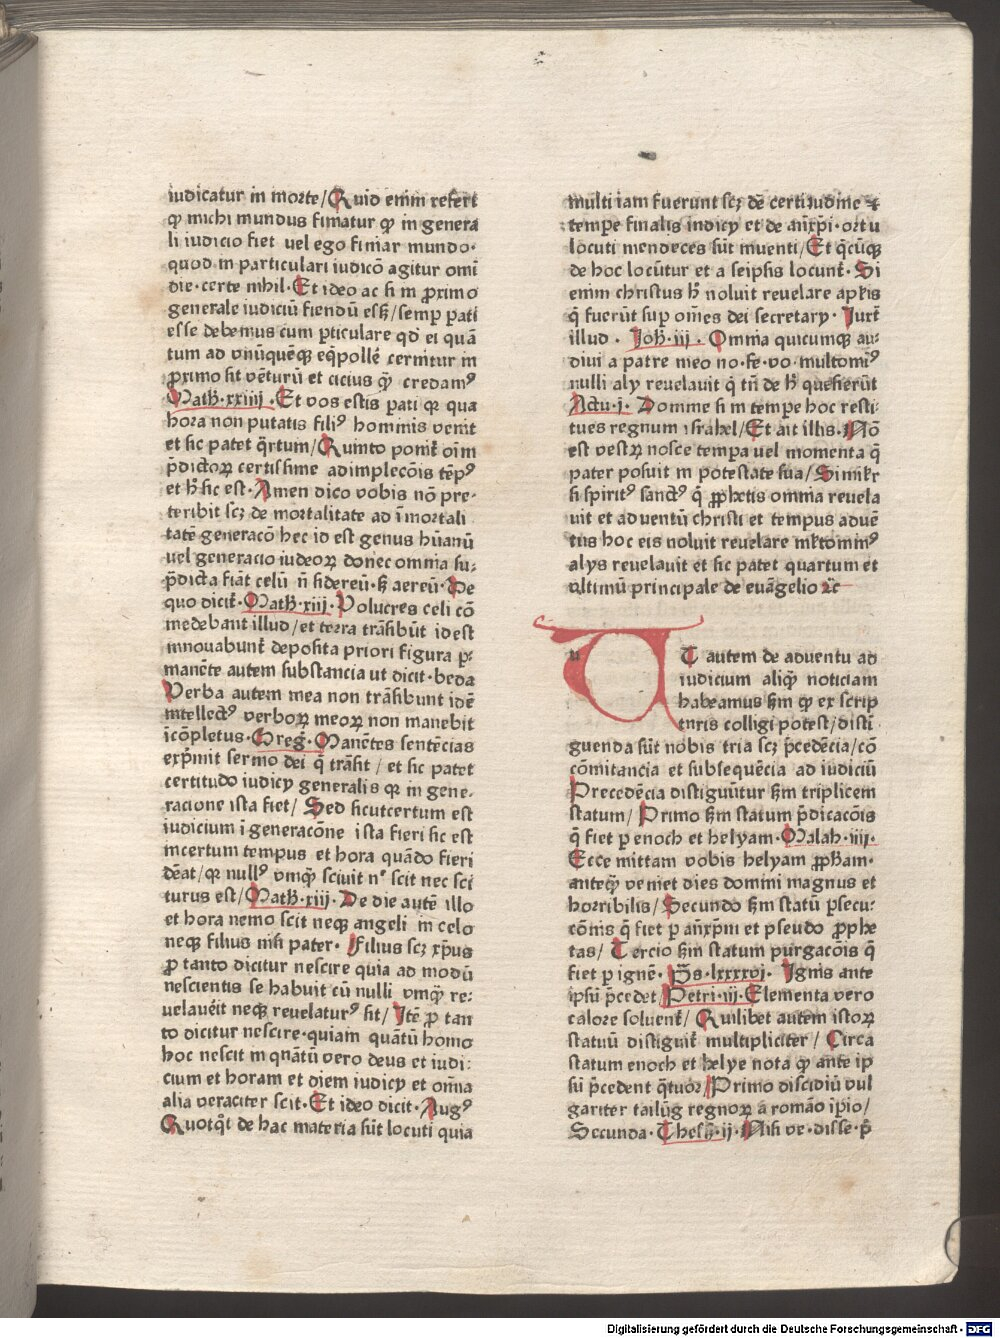 iudicatur in morte/Quid enim refert
ꝙ michi mundus finiatur ꝙ in genera
li iudicio fiet uel ego finiar mundo·
quod in particulari iudicō agitur omī
die·certe nihil·Et ideo ac si in ꝓximo
generale iudiciū fiendū esſꝫ/semꝑ pati
esse debemus cum ꝑticulare qđ ei quā
tum ad vnūquēqꝫ eq̄pollē cernitur in
ꝓximo sit vētuꝛū et cicius ꝙ̄ credamꝰ
Math̄·xxiiij·Et vos estis pati qꝛ qua
hora non putatis filiꝰ hominis venit
et sic patet q̄rtum/Quinto ponit̄ oīm
p̄dictoꝝ certissime adimplecōis tēpꝰ
et h̄ sic est·Amen dico vobis nō pre-
teribit scꝫ de mortalitate ad īmortali
tatē generacō hec id est genus hūanū
uel generacio iudeoꝝ donec omnia su-
p̄dicta fiāt celū n̄ sidereū·sꝫ aereū·De
quo dicit̄·Math̄·xiij·Volucres celi cō
medebant illud/et terra trāsibūt id est
innouabunt̄ deposita priori figura ꝑ-
manēte autem substancia ut dicit·beda
Verba autem mea non trāsibunt idē
intellectꝰ verboꝝ meoꝝ non manebit
īcōpletus·Greg̅·Manētes sentēcias
exp̄mit sermo dei q̄ trāsit/et sic patet
certitudo iudicy generalis qꝛ in gene-
racione ista fiet/Sed sicut certum est
iudicium ī generacōne ista fieri sic est
incertum tempus et hora quādo fieri
dēat/qꝛ nullꝰ vmq̄ꝫ sciuit nᵉ scit nec sci
turus est/Math̄·xiij·De die autē illo
et hora nemo scit neqꝫ angeli in celo
neqꝫ filius nisi pater·Filius scꝫ xp̄us
ꝓ tanto dicitur nescire quia ad modū
nescientis se habuit cū nulli vmq̄ꝫ re-
uelauēit neqꝫ reuelaturꝰ sit/Itē ꝓ tan
to dicitur nescire·quiam quātū homo
hoc nescit in quātū vero deus et iudi-
cium et horam et diem iudicy et om̄ia
alia veraciter scit·Et ideo dicit·Augꝰ
Quotq̇t de hac materia sūt locuti quia
multi iam fuerunt scꝫ dē certitudine ⁊
tempe finalis indicy et de anx̄pi·ortu
locuti mendeces sūt inuenti/Et q̄cūqꝫ
de hoc locūtur et a seipsis locunt̄·Si
enim christus h̄ noluit reuelare ap̄lis
q̄ fuerūt suꝑ om̄es dei secretary·Iuxt̄
illud·Joh̄·iij·Omnia quicumqꝫ au-
diui a patre meo no·fe·vo·multominꝰ
nulli aly reuelauit q̄ tn̄ de h̄ quesierūt
Actu·j·Domine si in tempe hoc resti-
tues regnum israhel/Et ait illis·Nō
est vestꝝ nosce tempa uel momenta q̄
pater posuit in potestate sua/Similr
si spiritꝰ sanctꝰ q̄ ꝓphetis omnia reuela
uit et aduentū christi et tempus aduē
tus hoc eis noluit reuelare mltominꝰ
alys reuelauit et sic patet quartum et
ultimū principale de euāgelio ⁊c̄
UT autem de aduentu ad
iudicium aliq̄ꝫ noticiam
habeamus sm̄ ꝙ ex scrip
turis colligi potest/disti
guenda sūt nobis tria scꝫ p̄cedēcia/cō
cōmitancia et subsequēcia ad iudiciū
Precedēcia distiguūtur sm̄ triplicem
statum/Primo sm̄ statum p̄dicacōis
q̄ fiet ꝑ enoch et helyam·Malah·iiij·
Ecce mittam vobis helyam ꝓph̄am·
anteqꝫ̄ veniet dies domini magnus et
horribilis/Secundo sm̄ statū ꝑsecu-
cōnis q̄ fiet ꝑ anx̄pm̄ et pseudo ꝓphe
tas/Tercio sm̄ statum purgacōis q̄
fiet ꝑ ignē·Ps̄·lxxxxvj·Ignis ante
ipsū p̄cedet/Petri·iij·Elementa vero
calore soluent̄/Quilibet autem istoꝝ
statuū distiguit̄ multipliciter/Circa
statum enoch et helye nota ꝙ ante ip
sū p̄cedent q̄tuor/Primo discidiū vul
gariter tailūg regnoꝝ a romāo īpio/
Secunda·Thesſ·ij·Nisi ve·disse·p̄
Digitalisierung gefördert durch die Deutsche Forschungsgemeinschaft · DFG